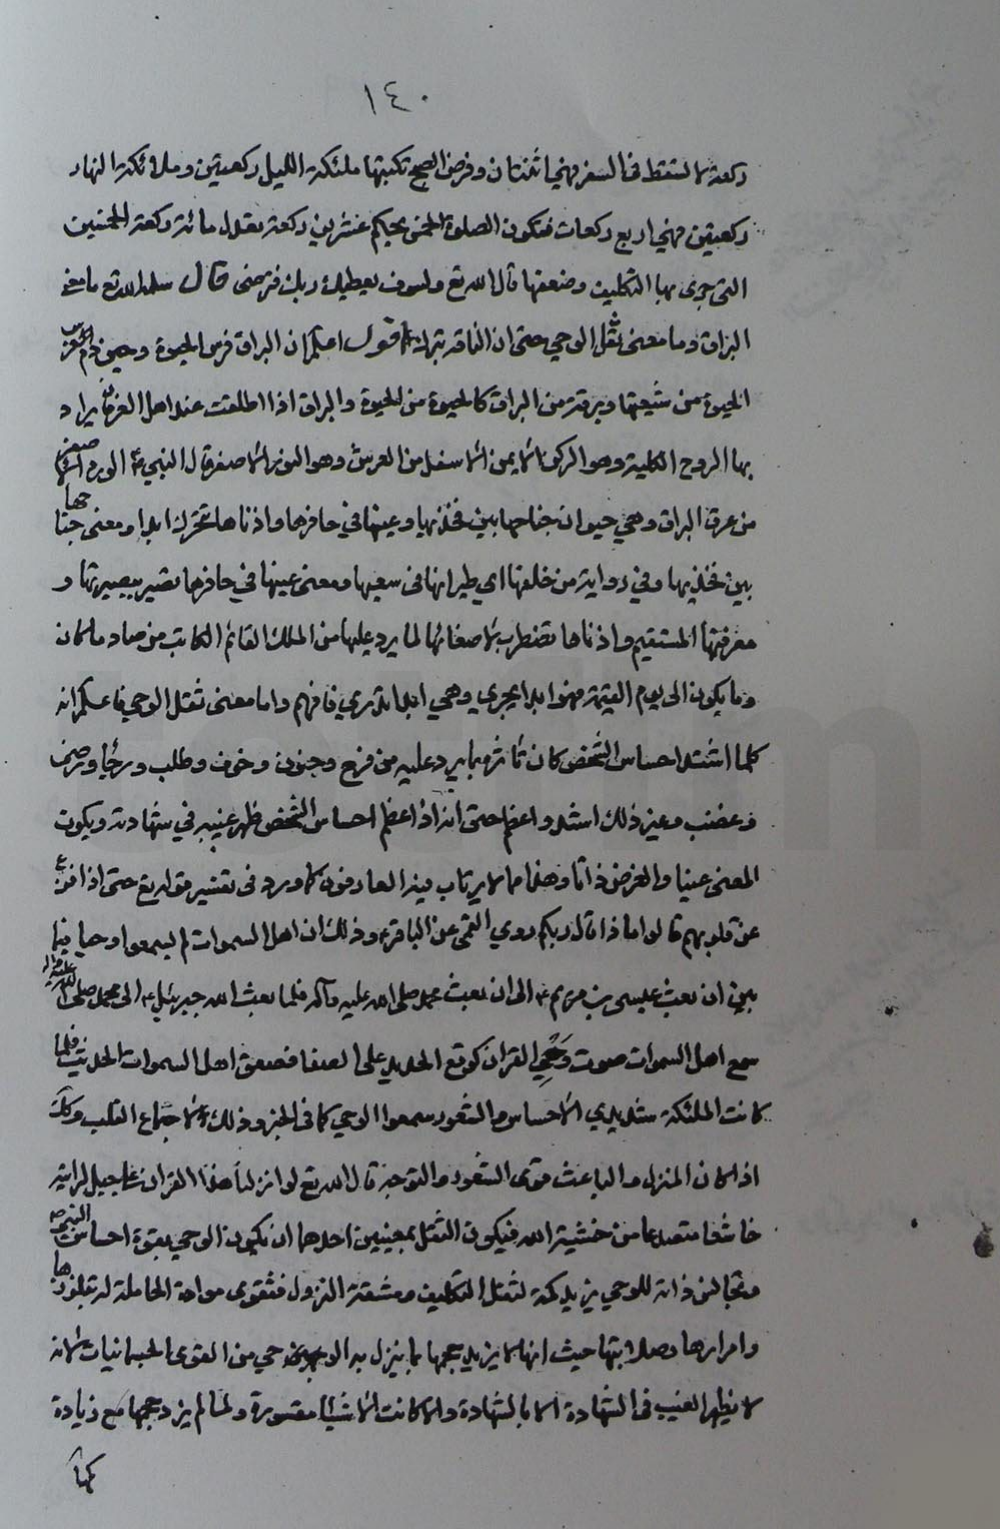 ١٤٠
ركعة لا تسقط في السفر فهي اثنتان وفرض الصبح تكتبها ملئكة الليل ركعتين وملائكة النهار
ركعتين فهي اربع ركعات فتكون الصلوة الخمس بحكم عشرين ركعة بعدل مائة ركعة الخمسين
التي جرى بها التكليف وضعفها قال الله تع ولسوف يعطيك ربك فترضى قال سلمه الله تع ما معنى
البراق وما معنى ثقل الوحي حتى ان الناقة تبرك اقول اعلم ان البراق فرس الحيوة وحيزوم فرس
الحيوة من شيعتها وبرقة من البراق كالحيوة من الحيوة والبراق اذا اطلقت عند اهل العرفان يراد
بها الروح الكلية وهو الركن الايمن الاسفل من العرش وهو النور الاصفر قال النبي ص الورد الاصفر
من عرق البراق وهي حيوان جناحها بين فخذيها وعينها في حافرها واذناها تتحرك ابدا ومعنى جناحها
بين فخذيها وفي رواية من خلفها اي طيرانها في سعيها ومعنى عينها في حافرها تصير ببصيرتها و
معرفتها المستقيم واذناها تضطرب لاصغائها لما يرد عليها من الملك القائم الكاتب من صاد ما كان
وما يكون الى يوم القيمة فهو ابدا يجري وهي ابدا تدري فافهم واما معنى ثقل الوحي فاعلم انه
كلما اشتد احساس الشخص كان تأثره بما يرد عليه من فرح وحزن وخوف وطلب ورجاء ورضى
وغضب وغير ذلك اشد واعظم حتى انه اذا عظم احساس الشخص ظهر غيبه في شهادته ويكون
المعنى عينا والعرض ذاتا وهذا مما لا يرتاب فيه العارفون كما ورد في تفسير قوله تع حتى اذا فزع
عن قلوبهم قالوا ماذا قال ربكم روى القمي عن الباقر ع وذلك ان اهل السموات لم يسمعوا وحيا فيما
بين ان بعث عيسى بن مريم ع الى ان بعث محمد صلى الله عليه وآله فلما بعث الله جبرئيل ع الى محمد صلى الله عليه وآله
سمع اهل السموات صوت وَحْيِ القران كوقع الحديد على الصفا فصعق اهل السموات الحديث فلما
كانت الملئكة شديدي الاحساس والشعور سمعوا الوحي كما في الخبر وذلك لاجتماع القلب وكك
اذا كان المنزل والباعث قوى الشعور والتوجه قال الله تع لو انزلنا هذا القران على جبل لرايته
خاشعا متصدعا من خشية الله فيكون الثقل بمعنيين احدهما ان يكون الوحي بقوة احساس النبي ص
وتجالس ذاته للوحي يزيد كمه لثقل التكليف ومشقة النزول فتقوى مواده الحاملة له بتلززها
وامرارها وصلابتها حيث انها لا يزيد حجمها بما ينزل به الوحي من القوى الجسمانيات لانه
لا يظهر الغيب في الشهادة الا بالشهادة والا كانت الاشياء مقسورة ولما لم يزد حجمها مع زيادة
كمها